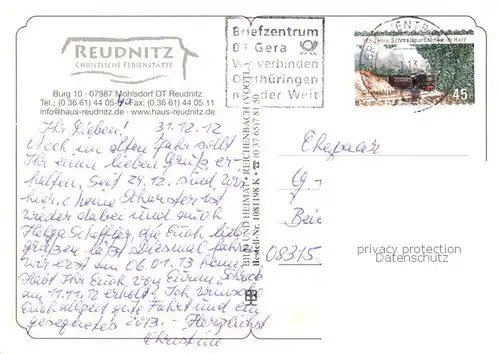 REUDNITZ
CHRISTLICHE FERIENSTÄTTE
Burg 10 · 07987 Mohlsdorf OT Reudnitz
Tel.: (0 36 61) 44 05- Fax: (0 36 61) 44 05 11
info@haus-reudnitz.de · www.haus-reudnitz.de
Ihr Lieben! 31.12.12
Noch im alten Jahr sollt
Ihr einen lieben Gruß er-
halten. Seit 27.12. sind wir
hier.
wieder dabei und auch
Helga die Euch lieb
grüßen läßt. Diesmal fahren
wir erst am 06.01.13 heim.
Habt Ihr Euch von Eurem
am 11.11.12 erholt? Ich wünsche
Euch allzeit gute Fahrt und ein
gesegnetes 2013. - Herzlichst
Christine
BILD UND HEIMAT · REICHENBACH (VOGTL.)
Bestell-Nr. 1081198 K · ☎ (0 37 65) 7 81 50
Briefzentrum
07 Gera
Wir verbinden
Ostthüringen
mit der Welt
BRIEFZENTRUM
Jahre Schmalspurbahnen im Harz
Deutschland
45
Ehepaar
G.
08315
privacy protection
Datenschutz